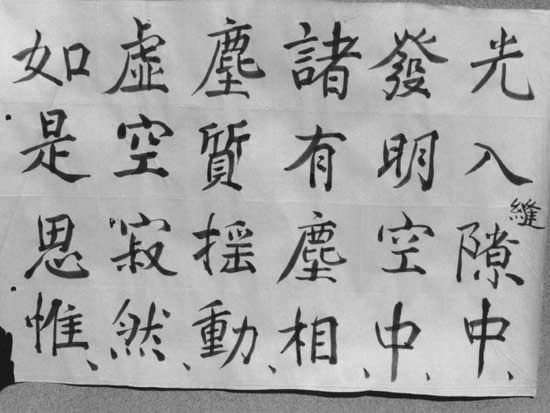 光入隙中、
縫
發明空中、
諸有塵相、
塵質搖動、
虛空寂然、
如是思惟、